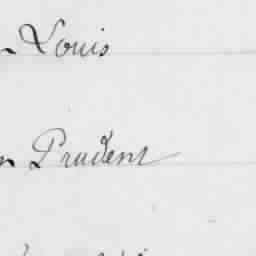 Louis
Prudent